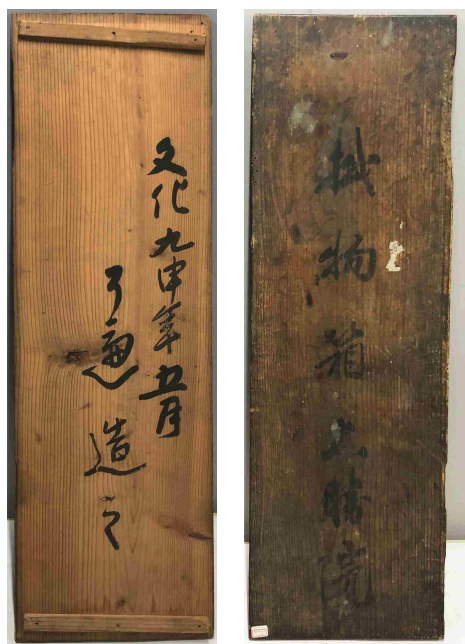 文化九申年五月
了造之
掛物箱大勝院